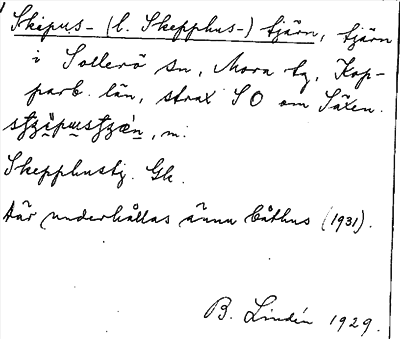 Skipus- (l. Skepphus-) tjärn, tjärn
i Sollerö sn, Mora tg, Kop-
parb. län, strax SO om Säxen.
m.
Skepphustj. Gk.
Där underhållas ännu båthus (1931).
B. Lindén 1929.